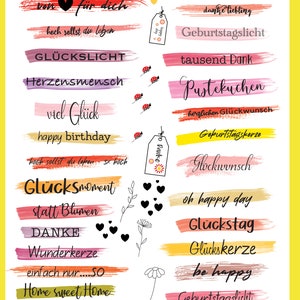 von ♥ für dich
hoch sollst du leben
GLÜCKSLICHT
Herzensmensch
viel Glück
happy birthday
hoch sollst du leben
GLÜCKSmoment
statt Blumen
DANKE
Wunderkerze
einfach nur....SO
Home sweet Home
Danke
danke liebling
Geburtstagslicht
tausend Dank
Pustekuchen
herzlichen Glückwunsch
Geburtstagskerze
Glückwunsch
oh happy day
Glückstag
GlücksKERZE
be happy
Geburtstagslicht